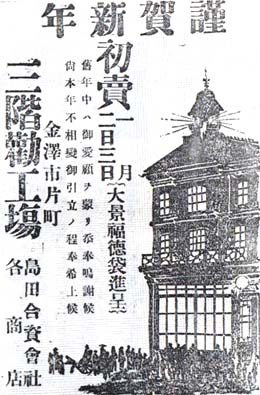 謹賀新年
初賣 一月二日三日(大景福徳袋進呈)
舊年中ハ御愛顧ヲ蒙リ忝奉鳴謝候
尚本年不相變御引立ノ程奉希上候
金澤市片町
三階勸工場
島田合資會社
各商店